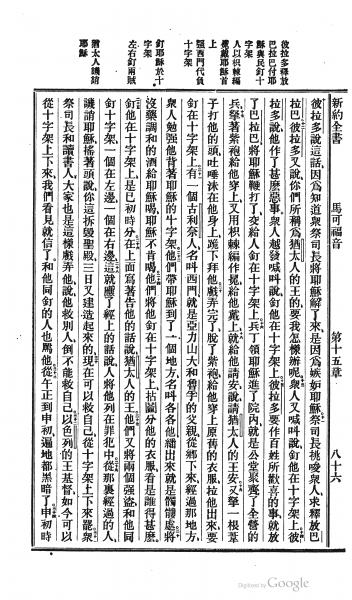 彼拉多釋放
巴拉巴付耶
穌與民釘十
字架
人以枳棘編
冕戴耶穌首
上
強西門代負
十字架
釘耶穌於十
字架
左右釘兩賊
猶太人譏誚
耶穌
新約全書 馬可福音 第十五章 八十六
彼拉多說這話因爲知道衆祭司長將耶穌解了來是因爲嫉妬耶穌祭司長挑唆衆人求釋放巴
拉巴彼拉多又說你們所稱爲猶太人的王的要我怎樣辦呢衆人又喊叫說釘他在十字架上彼
拉多說他作了甚麼惡事衆人越發喊叫說釘他在十字架上彼拉多要作百姓所歡喜的事就放
了巴拉巴將耶穌鞭打了交給人釘在十字架上兵丁領耶穌進了院內就是公堂聚齊了全營的
兵拏著紫袍給他穿上又用枳棘編作冕給他戴上就給他請安說請猶太人的王安又拏一根葦
子打他的頭吐唾沫在他身上跪下拜他戲弄完了脫了紫袍給他穿上原舊的衣服拉他出來要
釘在十字架上有一個古利奈人名叫西門就是亞力山大和魯孚的父親從鄉下來經過那地方
衆人勉強他背著耶穌的十字架他們帶耶穌到了一個地方名叫各各他繙出來就是髑髏處將
沒藥調和的酒給耶穌喝耶穌不肯喝他們將他釘在十字架上拈鬮分他的衣服看是誰得甚麼
釘他在十字架上是巳初時分在上面寫著告他的話說猶太人的王他們又將兩個強盜和他同
釘十字架一個在左邊一個在右邊這就應了經上的話說人將他列在罪犯中從那裏經過的人
譏誚耶穌搖著頭說你這拆毀聖殿三日又建造起來的現在可以救自己從十字架上下來罷衆
祭司長和讀書人大家也是這樣戲弄他說他救別人倒不能救自己以色列的王基督如今可以
從十字架上下來我們看見就信了和他同釘的人也罵他從午正到申初遍地都黑暗了申初時
Digitized by Google